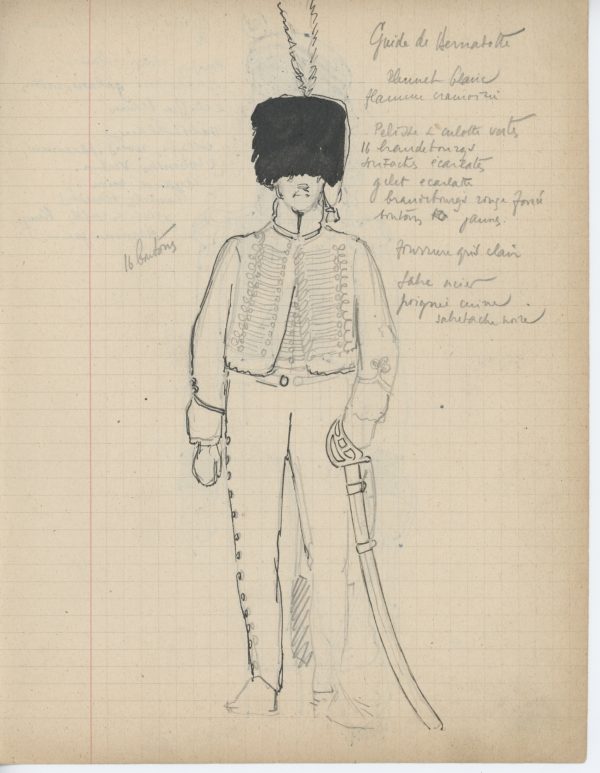 Guide de Bernadotte
Plumet blanc
flamme cramoisi
Pelisse & culotte vertes
16 brandebourgs
soutaches écarlates
gilet écarlate
brandebourgs rouge foncé
boutons jaunes.
Fourrure gris clair
Sabre acier
poignée cuivre
sabretache noire
16 boutons